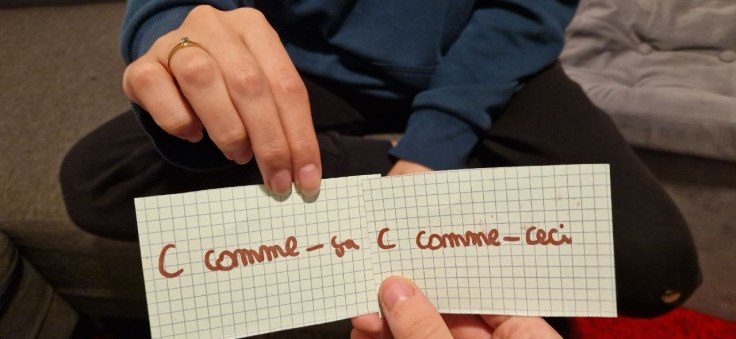 C comme-ça
C comme-ceci